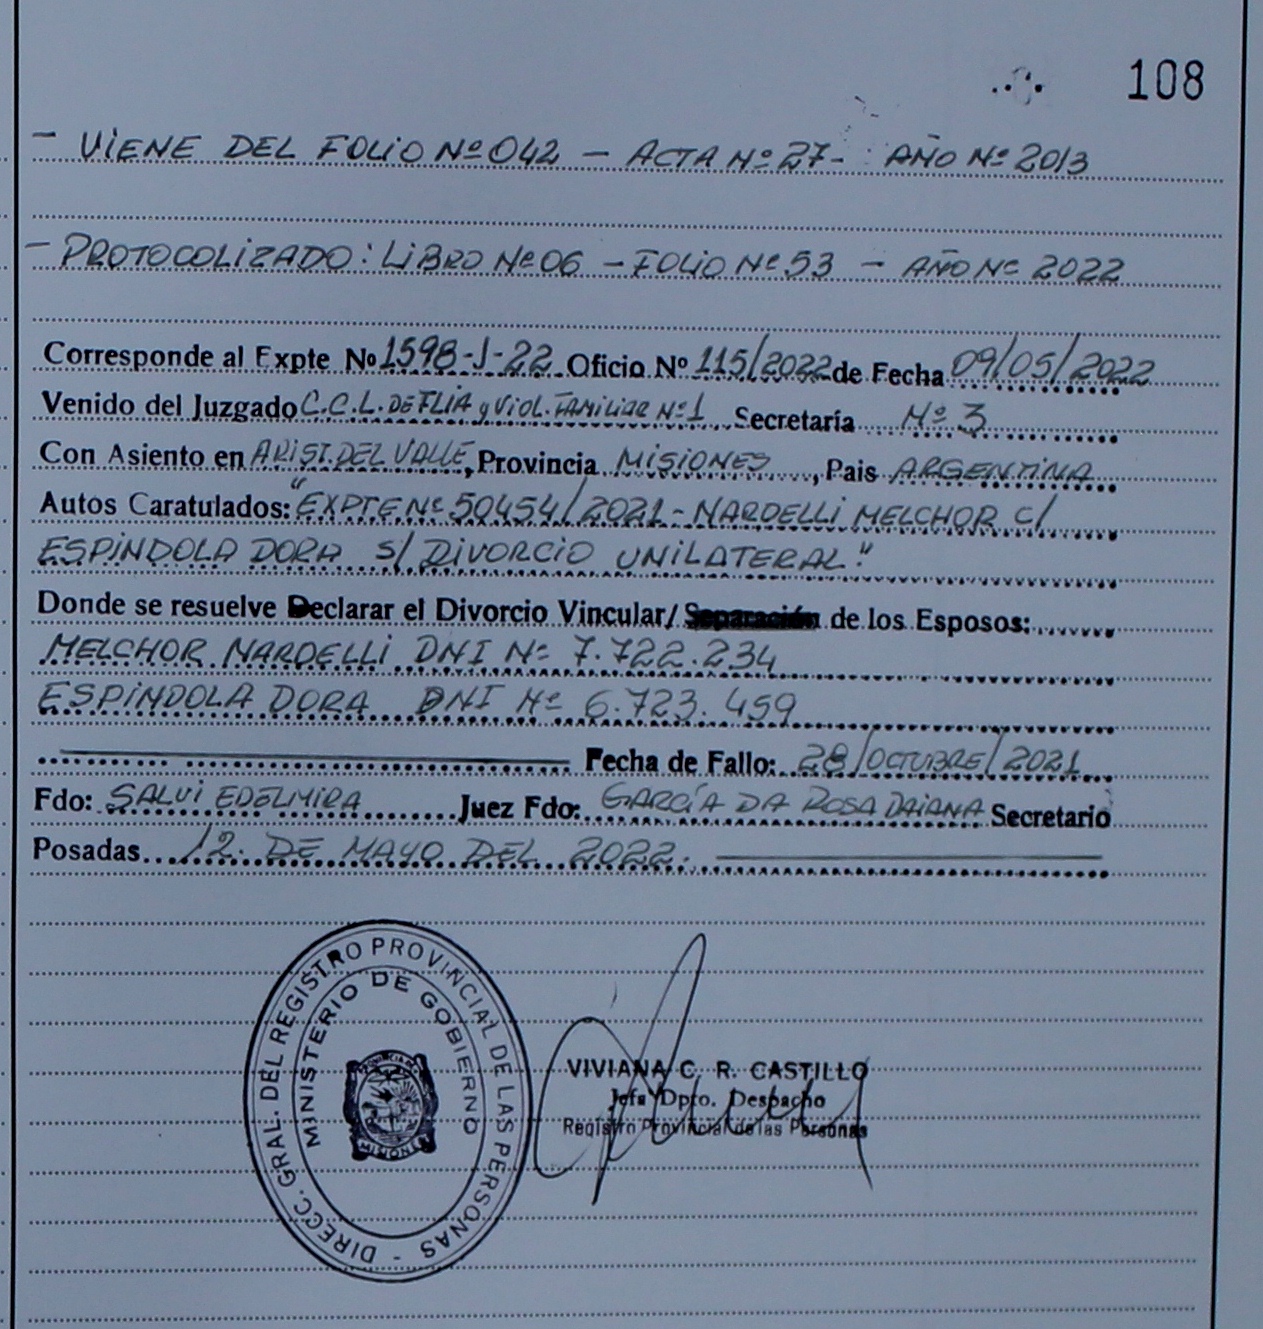 108
- VIENE DEL FOLIO Nº 042 - ACTA Nº 27 - AÑO Nº 2013
- PROTOCOLIZADO: LIBRO Nº 06 - FOLIO Nº 53 - AÑO Nº 2022
Corresponde al Expte Nº 1598-J-22 Oficio Nº 115/2022 de Fecha 09/05/2022
Venido del Juzgado C.C.L. DE FLIA y VIOL. FAMILIAR Nº 1 Secretaría Nº 3
Con Asiento en ARIST. DEL VALLE, Provincia MISIONES, Pais ARGENTINA
Autos Caratulados: "EXPTE Nº 50454/2021 - NARDELLI MELCHOR C/
ESPINDOLA DORA S/ DIVORCIO UNILATERAL."
Donde se resuelve Declarar el Divorcio Vincular/ Separación de los Esposos:
MELCHOR NARDELLI DNI Nº 7.722.234
ESPINDOLA DORA DNI Nº 6.723.459
Fecha de Fallo: 28/OCTUBRE/2021
Fdo: SALVI EDELMIRA Juez Fdo: GARCÍA DA ROSA DAIANA Secretario
Posadas 12 DE MAYO DEL 2022.
DIRECC. GRAL. DEL REGISTRO PROVINCIAL DE LAS PERSONAS -
MINISTERIO DE GOBIERNO
PROVINCIA DE
MISIONES
VIVIANA C. R. CASTILLO
Jefa Dpto. Despacho
Registro Provincial de las Personas